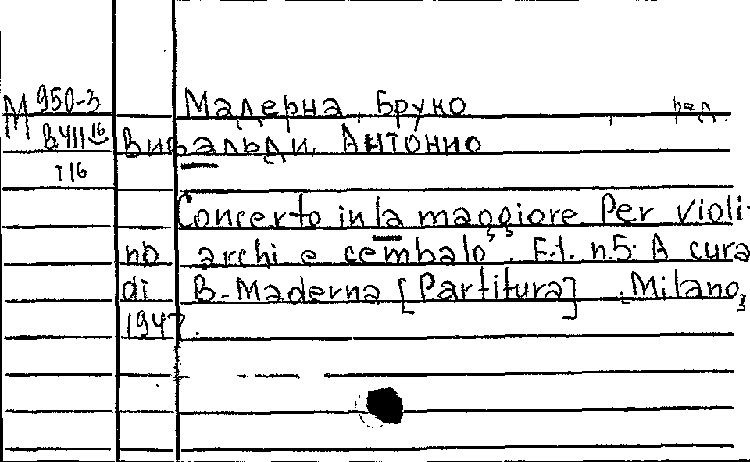 М 950-3
Мадерна, Бруно, ред.
ВЧ11 16
Вивальди, Антонио
т16
Concerto in la maggiore per violi-
no archi e cembalo. F.I. n.5. A cura
di B. Maderna [Partitura]. Milano,
1947.